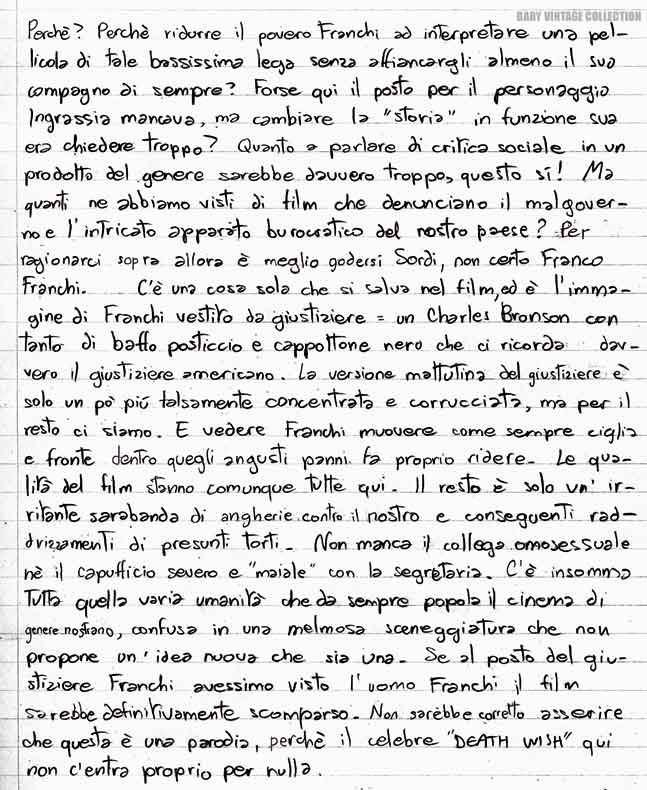 BABY VINTAGE COLLECTION
Perchè? Perchè ridurre il povero Franchi ad interpretare una pel-
licola di tale bassissima lega senza affiancargli almeno il suo
compagno di sempre? Forse qui il posto per il personaggio
Ingrassia mancava, ma cambiare la "storia" in funzione sua
era chiedere troppo? Quanto a parlare di critica sociale in un
prodotto del genere sarebbe davvero troppo, questo sì! Ma
quanti ne abbiamo visti di film che denunciano il malgover-
no e l'intricato apparato burocratico del nostro paese? Per
ragionarci sopra allora è meglio godersi Sordi, non certo Franco
Franchi. C'è una cosa sola che si salva nel film, ed è l'imma-
gine di Franchi vestito da giustiziere = un Charles Bronson con
tanto di baffo posticcio e cappottone nero che ci ricorda dav-
vero il giustiziere americano. La versione mattutina del giustiziere è
solo un pò più falsamente concentrata e corrucciata, ma per il
resto ci siamo. E vedere Franchi muovere come sempre ciglia
e fronte dentro quegli angusti panni fa proprio ridere. Le qua-
lità del film stanno comunque tutte qui. Il resto è solo un'ir-
ritante sarabanda di angherie contro il nostro e conseguenti rad-
drizzamenti di presunti torti. Non manca il collega omosessuale
nè il capufficio severo e "maiale" con la segretaria. C'è insomma
tutta quella varia umanità che da sempre popola il cinema di
genere nostrano, confusa in una melmosa sceneggiatura che non
propone un'idea nuova che sia una. Se al posto del giu-
stiziere Franchi avessimo visto l'uomo Franchi il film
sarebbe definitivamente scomparso. Non sarebbe corretto asserire
che questa è una parodia, perchè il celebre "DEATH WISH" qui
non c'entra proprio per nulla.